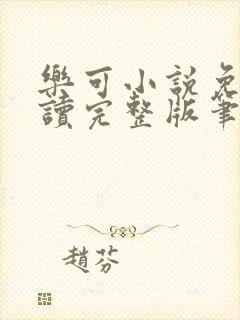 樂可小說免
讀完整版筆
趙芬